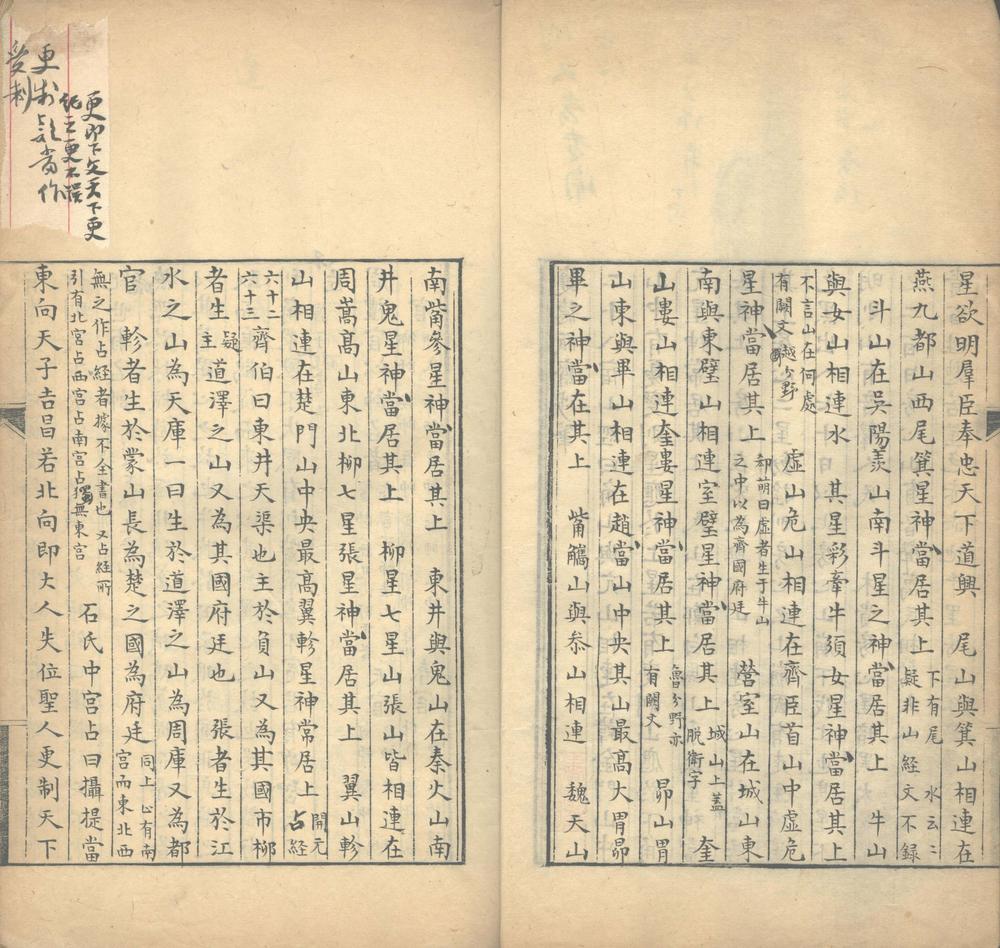 星欲明羣臣奉忠天下道興　尾山與箕山相連在
燕九都山西尾箕星神當居其上 下有尾　水云〻疑非山經文不錄
斗山在吳陽羨山南斗星之神當居其上　牛山
與女山相連水　其星彩牽牛須女星神當居其上
不言山在何處有闕文 越分野　虛山危山相連在齊臣首山中虛危
星神當居其上 郄萌曰虛者生于牛山之中以為齊國府廷　營室山在城山東
南與東璧山相連室璧星神當居其上 城山上蓋脫衛字　奎
山婁山相連奎婁星神當居其上 魯分野亦有闕文　昴山胃
山東與畢山相連在趙當山中央其山最高大胃昴
畢之神當在其上　觜觿山與叅山相連　魏天山
南觜參星神當居其上　東井與鬼山在秦火山南
井鬼星神當居其上　柳星七星山張山皆相連在
周嵩高山東北柳七星張星神當居其上　翼山軫
山相連在楚門山中央最高翼軫星神常居上 開元占經
六十二六十三　齊伯曰東井天渠也主於負山又為其國市柳
者生 疑主 道澤之山又為其國府廷也　張者生於江
水之山為天庫一曰生於道澤之山為周庫又為都
官　軫者生於蒙山長為楚之國為府廷 同上 㠯有南宮而東北西
無之作占經者據不全書也 又占經所引有北宮占西宮占南宮占獨無東宮　石氏中宮占曰攝提當
東向天子吉昌若北向即大人失位聖人更制天下
更即下文天下更
更制疑當作
受制